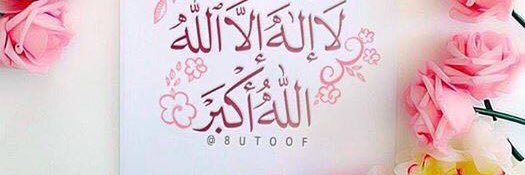 لَا إِلٰهَ إِلَّا ٱللَّٰهُ
اللّٰهُ أَكْبَرْ
@8UTOOF